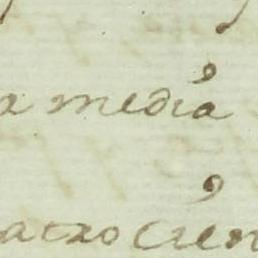 a media
atro cien